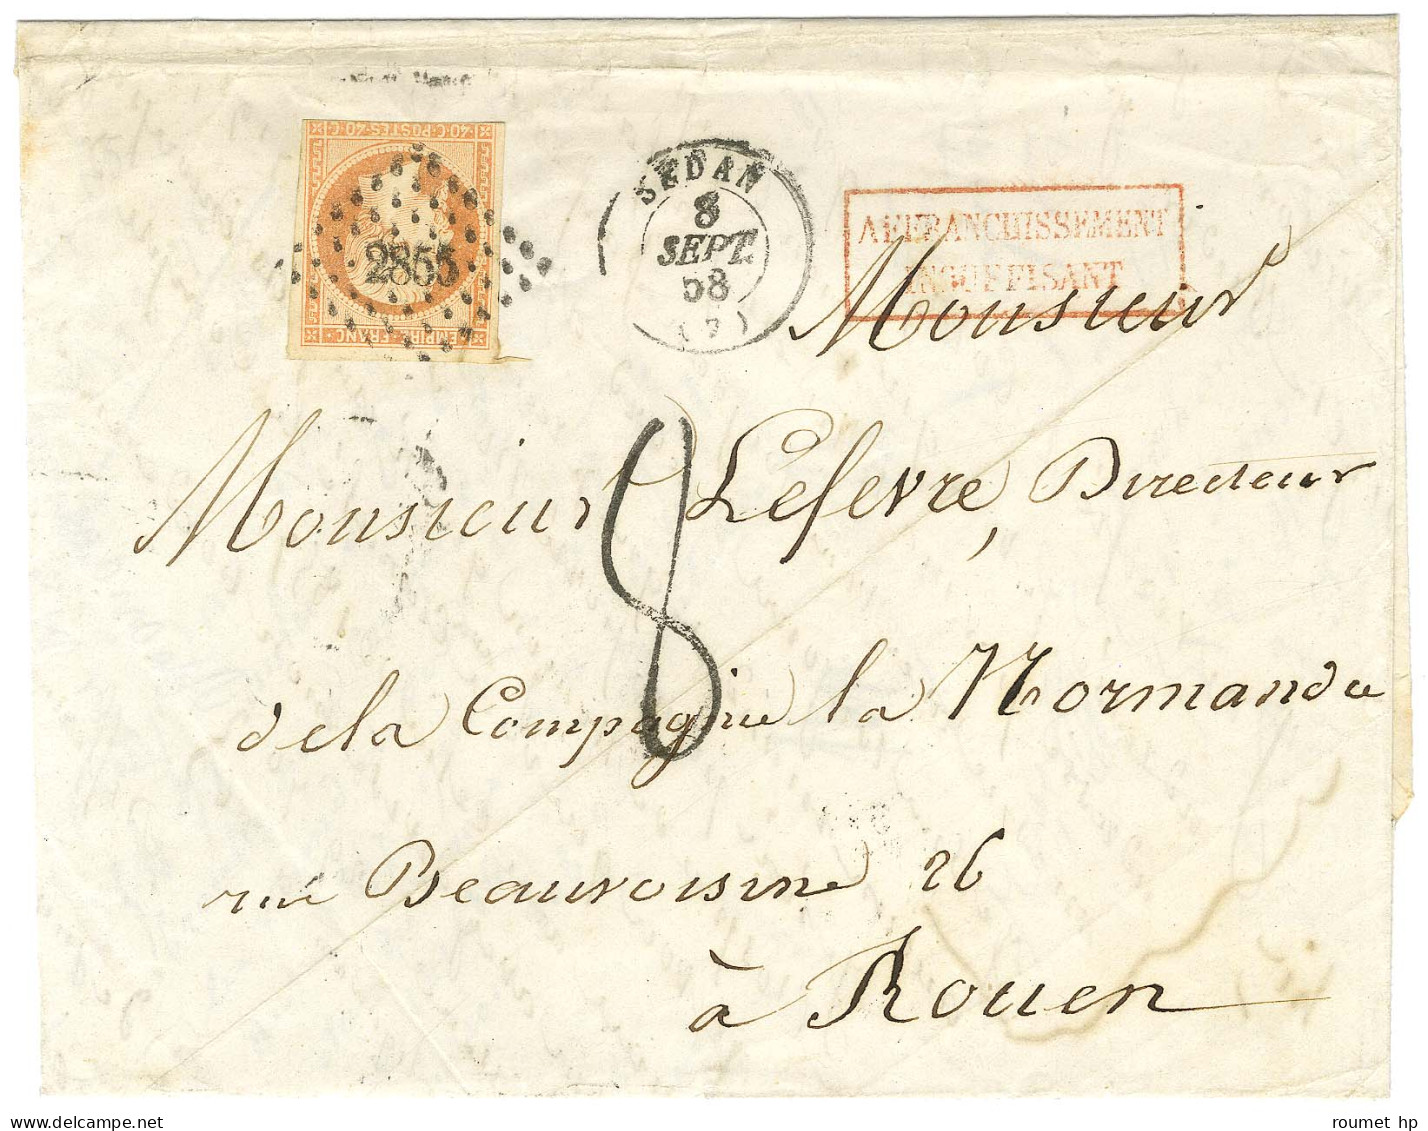 40·C·POSTES·40·C·
2855
EMPIRE FRANC
SEDAN
8
SEPT.
58
(7)
AFFRANCHISSEMENT
INSUFFISANT
Monsieur
Monsieur Lefevre, Directeur
8
de la Compagnie la Normande
rue Beauvoisine 26
à Rouen
Delcampe.net
roumet hp